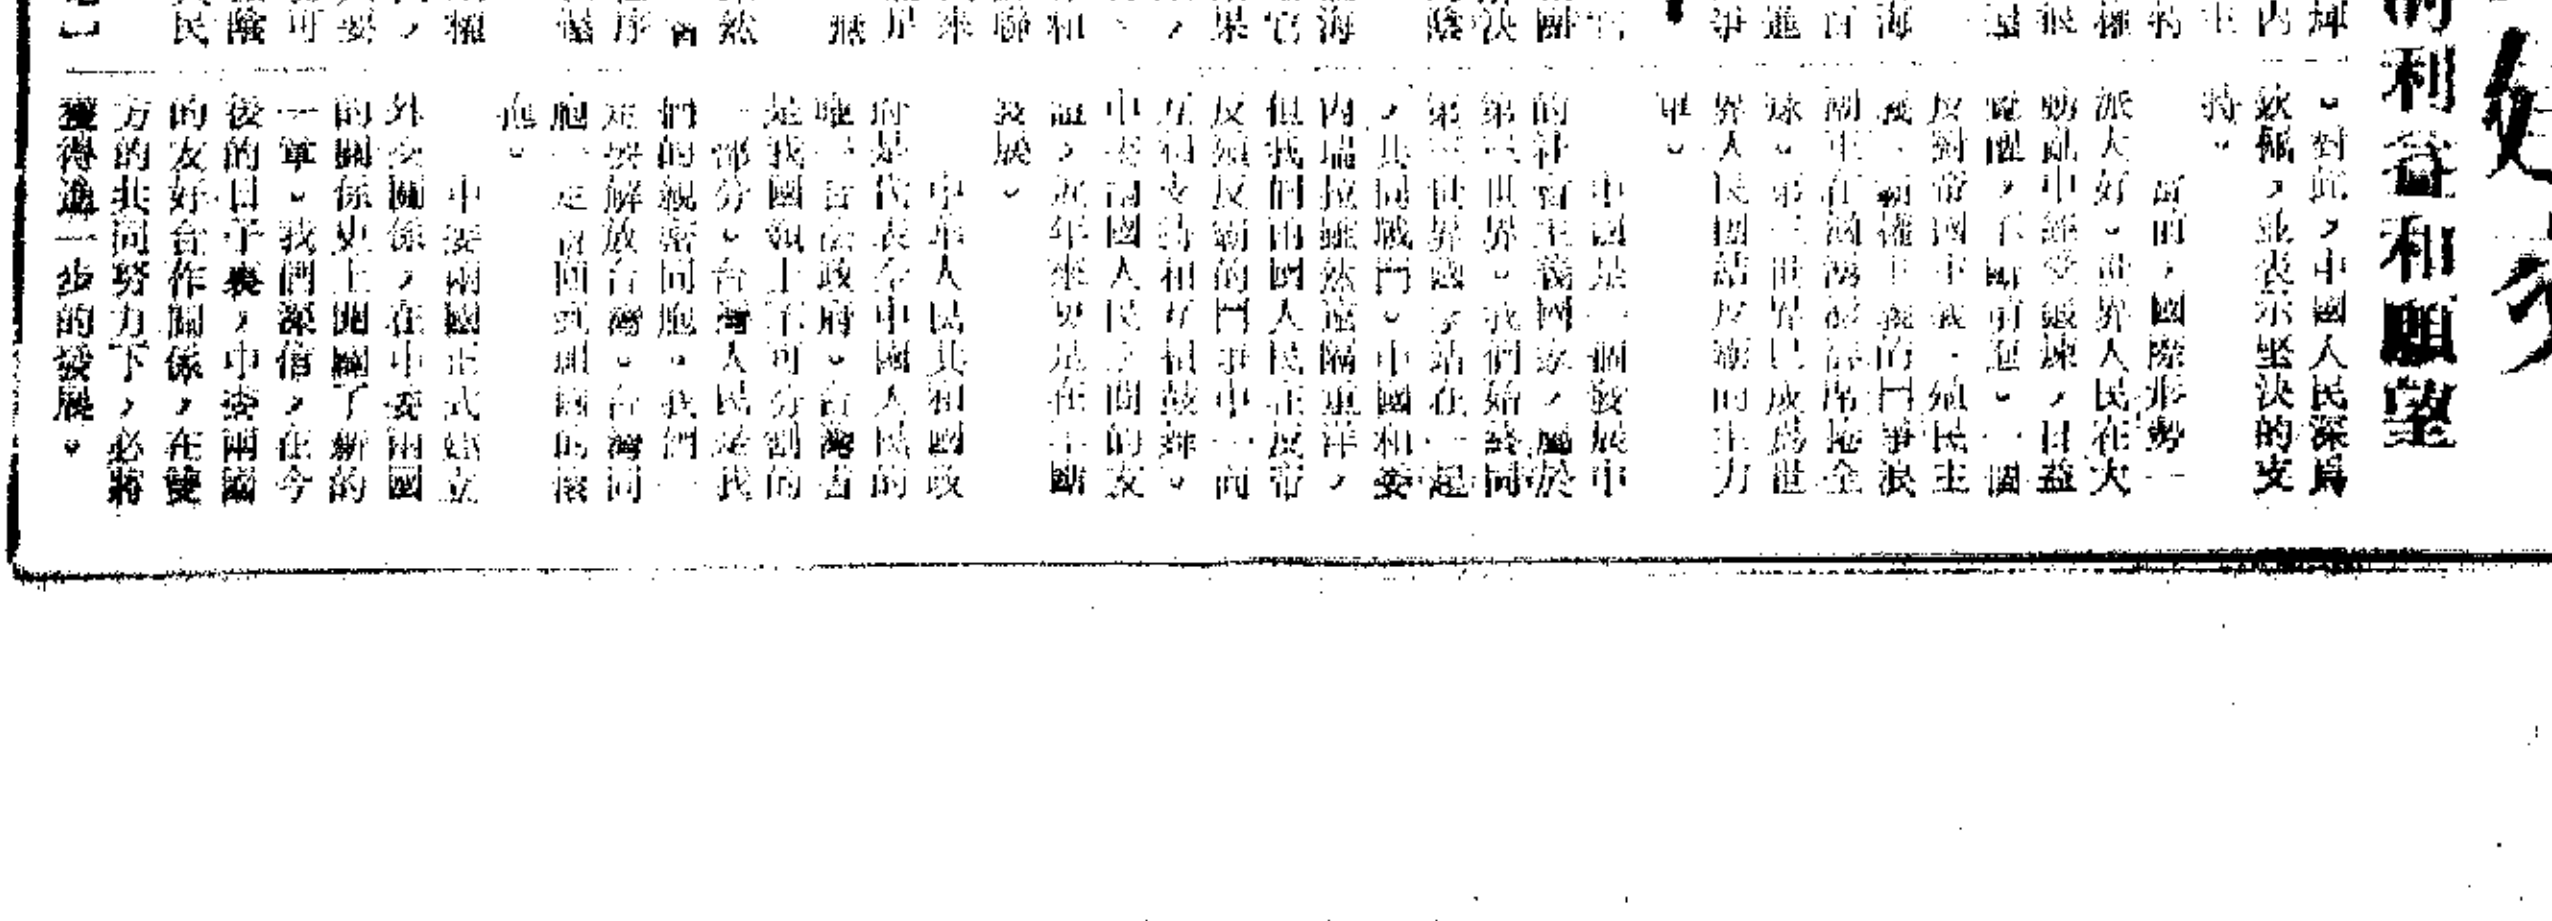 利益和願望
。對此,中國人民深爲
欽佩,並表示堅決的支
持。
當前,國際形勢一
派大好。世界人民在大
動亂中經受鍛煉,日益
覺醒,不斷前進。一個
反對帝國主義、殖民主
義、霸權主義的鬥爭浪
潮正在洶湧澎湃席捲全
球。第三世界已成爲世
界人民團結反霸的主力
軍。
中國是一個發展中
的社會主義國家,屬於
第三世界。我們始終同
第三世界國家站在一起
,共同戰鬥。中國和委
內瑞拉雖然遠隔重洋,
但我們兩國人民在反帝
反殖反霸的鬥爭中一向
互相支持和互相鼓舞。
中委兩國人民之間的友
誼,近年來更是在不斷
發展。
中華人民共和國政
府是代表全中國人民的
唯一合法政府。台灣省
是我國領土不可分割的
一部分。台灣人民是我
們的親密同胞。我們一
定要解放台灣。台灣同
胞一定會回到祖國的懷
抱。
中委兩國正式建立
外交關係,在中委兩國
的關係史上開闢了新的
一章。我們深信,在今
後的日子裏,中委兩國
的友好合作關係,在雙
方的共同努力下,必將
獲得進一步的發展。